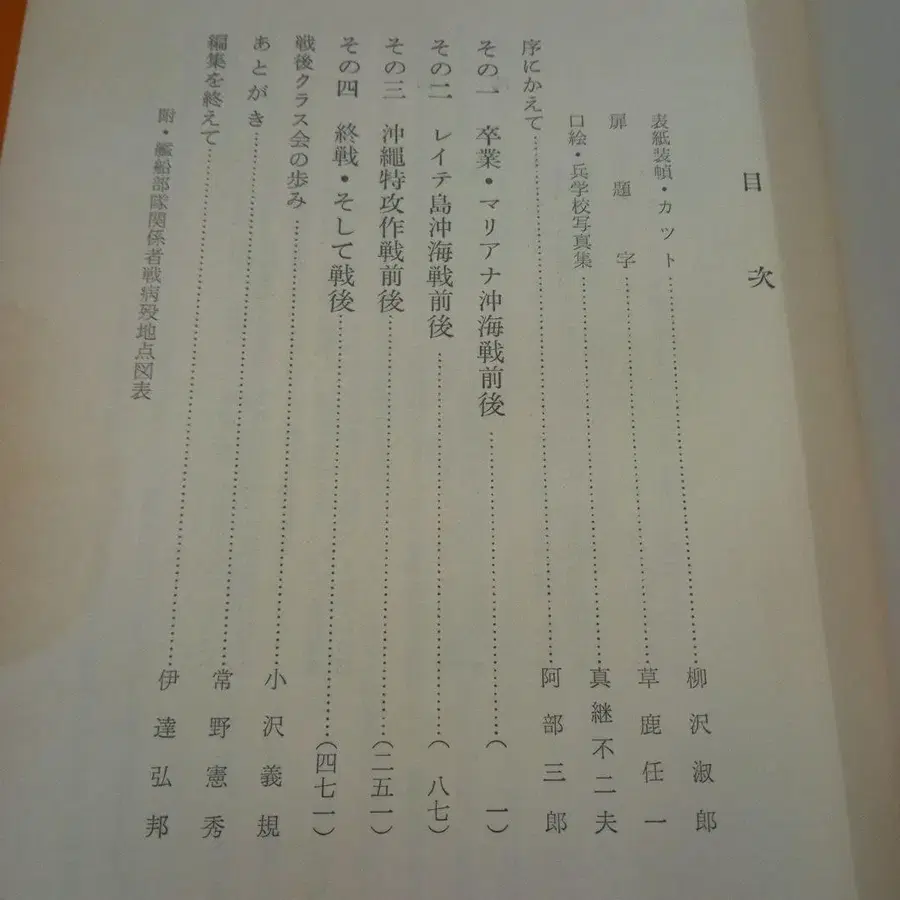 目次
表紙装幀・カット………柳沢淑郎
扉題字………草鹿任一
口絵・兵学校写真集………真継不二夫
序にかえて………阿部三郎
その一　卒業・マリアナ沖海戦前後………(一)
その二　レイテ島沖海戦前後………(八七)
その三　沖縄特攻作戦前後………(二五一)
その四　終戦・そして戦後………(四七一)
戦後クラス会の歩み………小沢義規
あとがき………常野憲秀
編集を終えて………伊達弘邦
附・艦船部隊関係者戦病歿地点図表